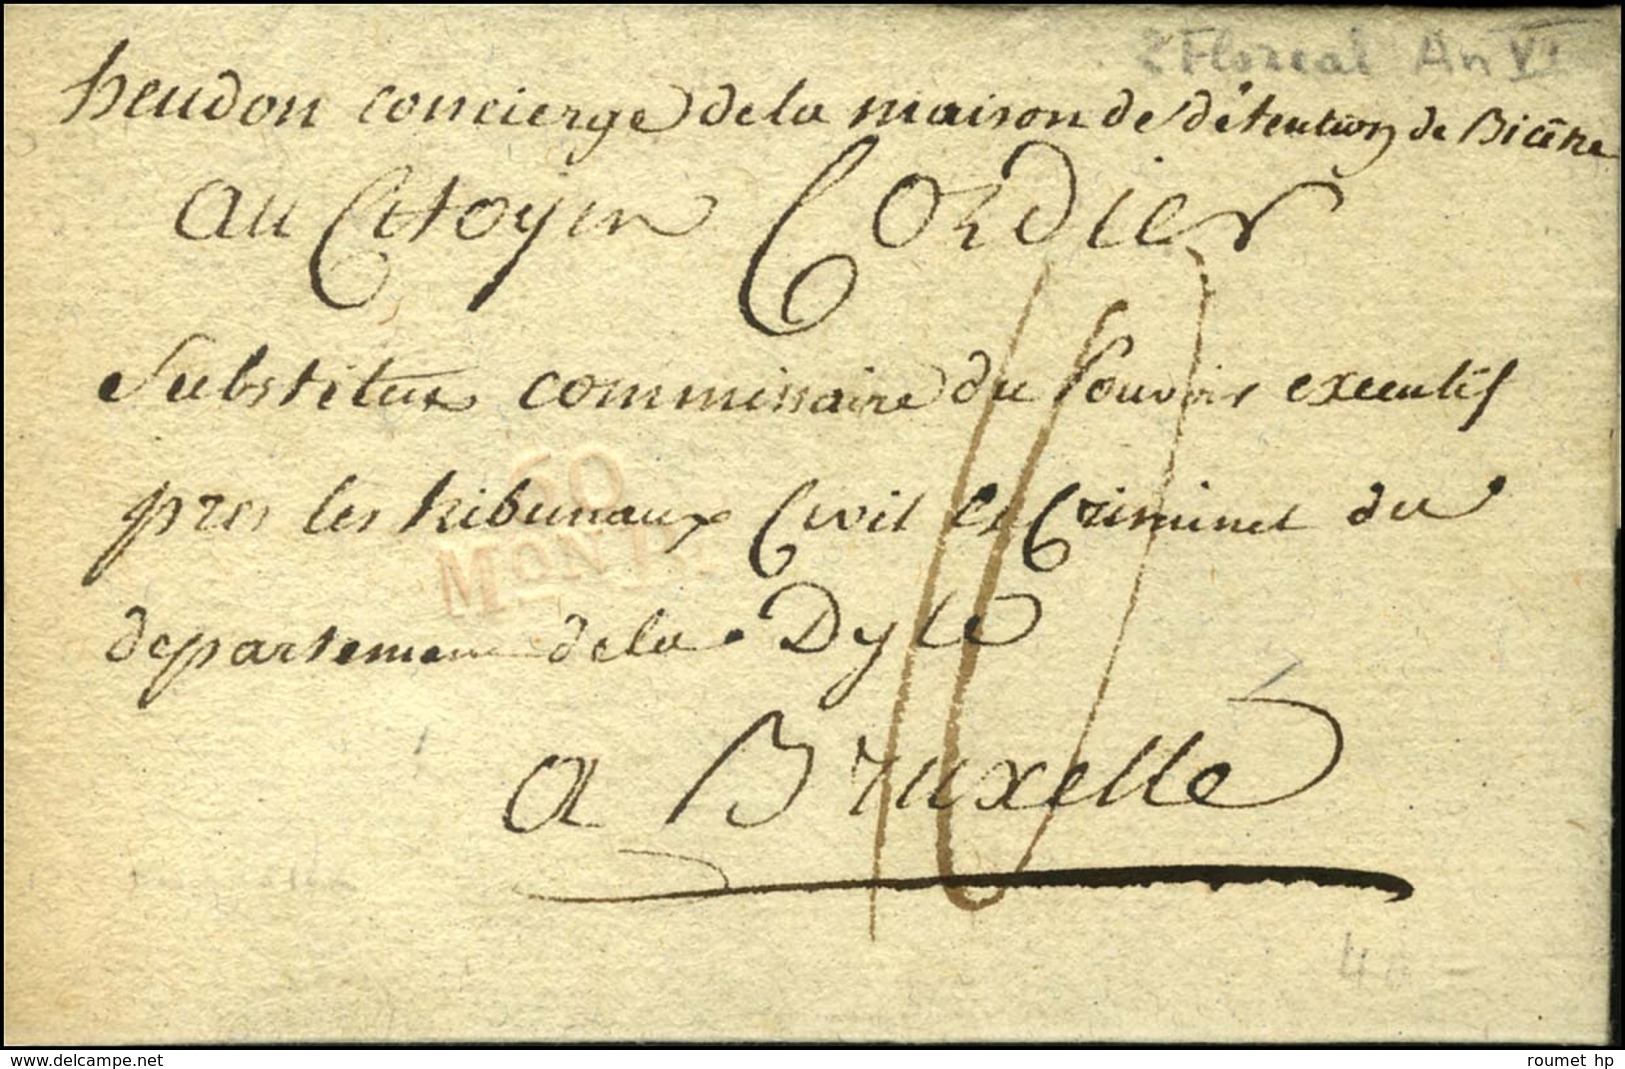 2 Floreal An VI
heudon concierge de la maison de détention de Bicêtre
au Citoyen Cordier
Substitut commissaire du Pouvoir executif
pres les tribunaux Civil et Criminel du
60
MONT
departement de la Dyle
a Bruxelle
4
delcampe.net
roumet hp